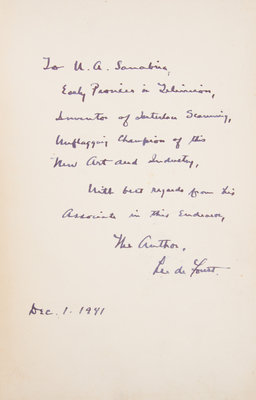 To U. A. Sanabria,
Early Pioneer in Television,
Inventor of Interlace Scanning,
Unflagging Champion of this
New Art and Industry,
With best regards from his
Associate in this Endeavor,
The Author.
Lee de Forest.
Dec. 1. 1941